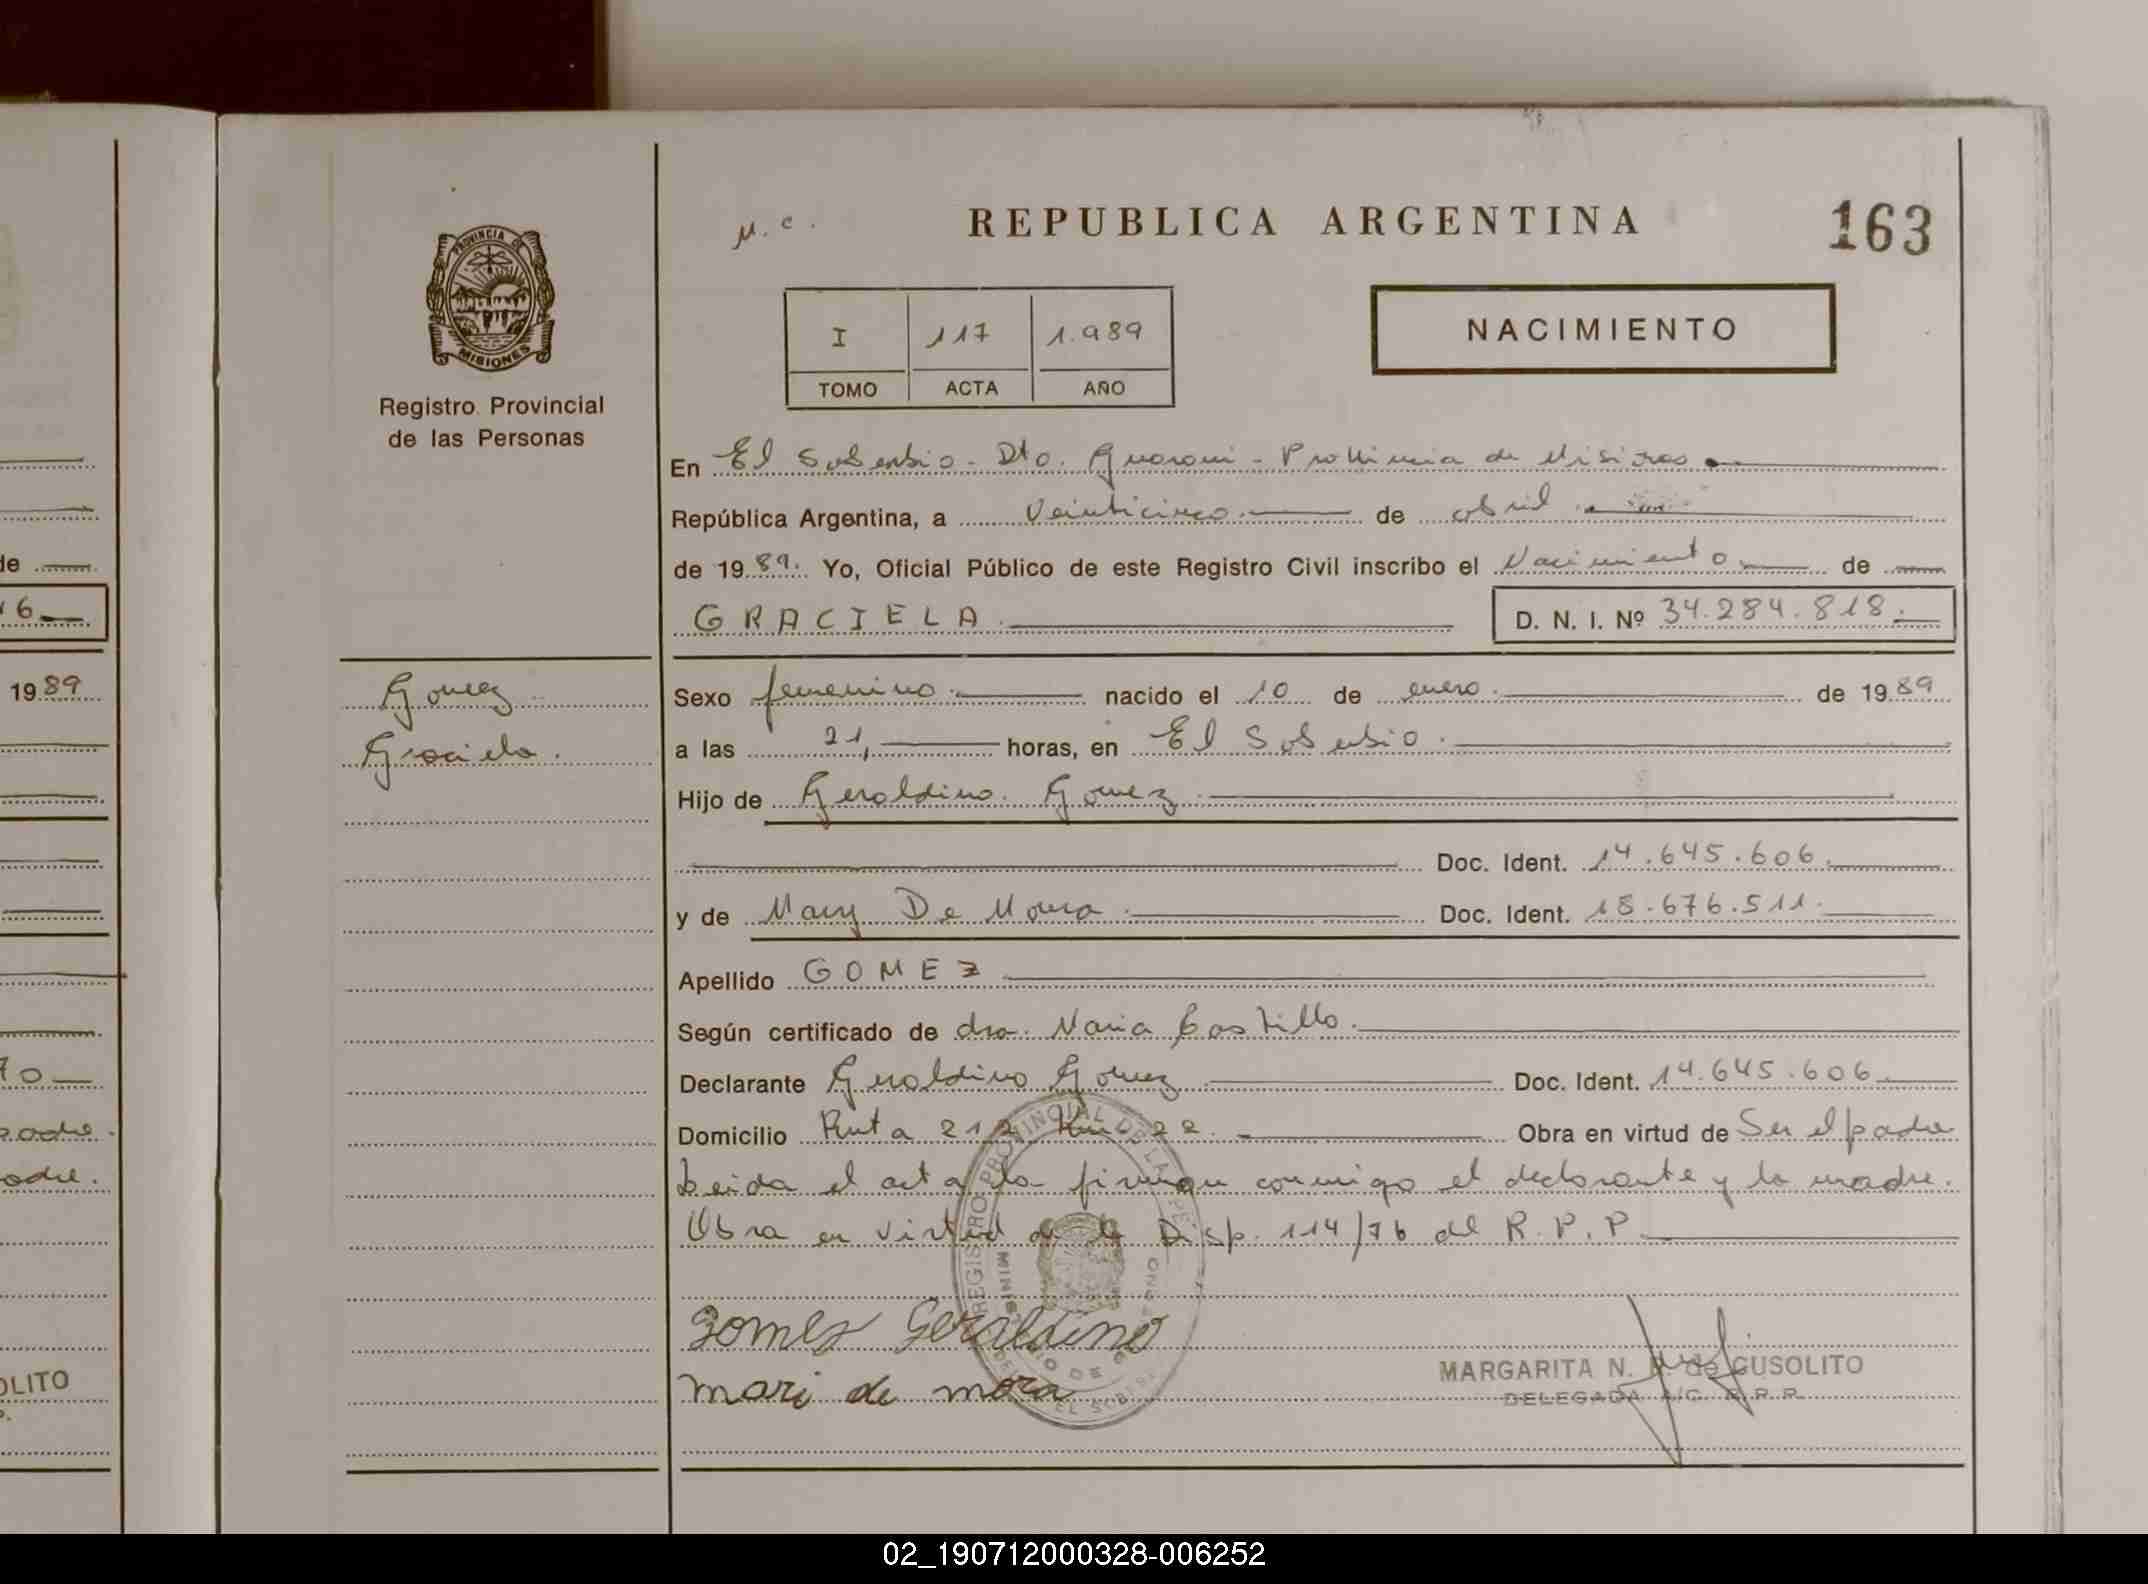 163
M.C.
REPUBLICA ARGENTINA
PROVINCIA DE
MISIONES
Registro Provincial
de las Personas
I 117 1.989
TOMO ACTA AÑO
NACIMIENTO
En El Soberbio - Dto. Guarani - Provincia de Misiones
República Argentina, a Veinticinco de abril
de 1989. Yo, Oficial Público de este Registro Civil inscribo el Nacimiento de
GRACIELA. D. N. I. Nº 34.284.818.
Gomez
Graciela.
Sexo femenino. nacido el 10 de enero. de 1989
a las 21, horas, en El Soberbio.
Hijo de Geraldino Gomez
Doc. Ident. 14.645.606.
y de Mary De Moura. Doc. Ident. 18.676.511.
Apellido GOMEZ
Según certificado de dra. Maria Castillo.
Declarante Geraldino Gomez Doc. Ident. 14.645.606
Domicilio Ruta 212 Km 22. Obra en virtud de Ser el padre
Leida el acta la firman conmigo el declarante y la madre.
Obra en virtud de la Disp. 114/76 del R.P.P
REGISTRO PROVINCIAL DE LAS PE
gomez Geraldino
mari de mora
MARGARITA N. de GUSOLITO
DELEGADA A/C. R.P.R.
de
6
1989
70
padre.
padre.
OLITO
02_190712000328-006252